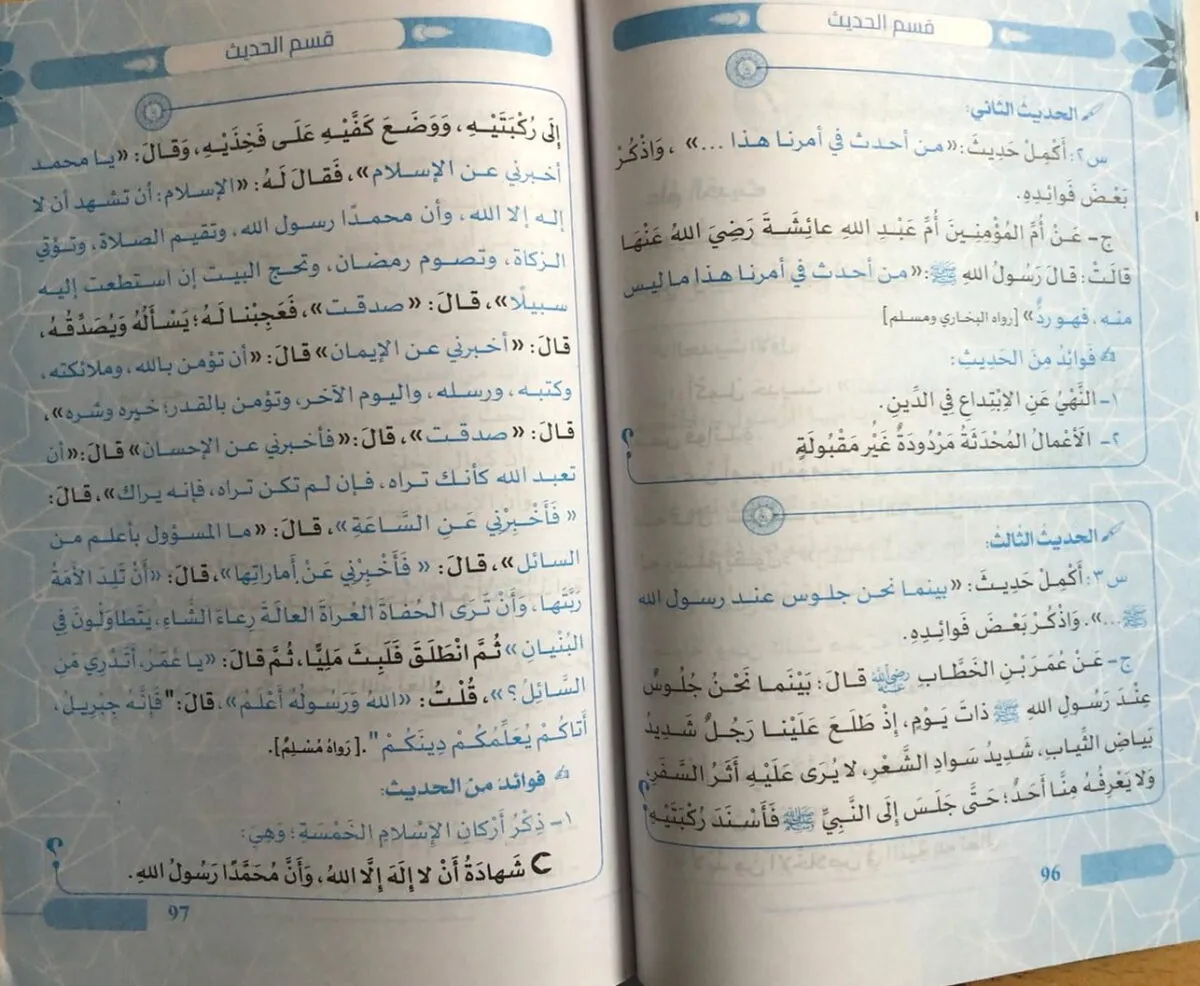 قسم الحديث
الحديث الثاني:
س٢: أَكْمِلْ حَدِيثَ: «من أحدث في أمرنا هذا ...» ، وَاذْكُرْ
بَعْضَ فَوَائِدِهِ.
ج- عَنْ أُمِّ المُؤْمِنِينَ أُمِّ عَبْدِ اللهِ عائِشَةَ رَضِيَ اللهُ عَنْهَا
قالَتْ: قالَ رَسُولُ اللهِ ﷺ: «من أحدث في أمرنا هذا ما ليس
منه، فهو ردٌّ» [رواه البخاري ومسلم]
فَوَائِدُ مِنَ الحَدِيثِ:
١- النَّهْيُ عَنِ الِابْتِداعِ فِي الدِّينِ.
٢- الأَعْمالُ المُحْدَثَةُ مَرْدُودَةٌ غَيْرُ مَقْبُولَةٍ
الحديث الثالث:
س٣: أَكْمِلْ حَدِيثَ: «بينما نحن جلوس عند رسول الله
ﷺ...». وَاذْكُرْ بَعْضَ فَوَائِدِهِ.
ج- عَنْ عُمَرَ بْنِ الخَطَّابِ رضي الله عنه قالَ: بَيْنَما نَحْنُ جُلُوسٌ
عِنْدَ رَسُولِ اللهِ ﷺ ذاتَ يَوْمٍ، إِذْ طَلَعَ عَلَيْنا رَجُلٌ شَدِيدُ
بَياضِ الثِّيابِ، شَدِيدُ سَوادِ الشَّعْرِ، لا يُرَى عَلَيْهِ أَثَرُ السَّفَرِ،
وَلا يَعْرِفُهُ مِنَّا أَحَدٌ؛ حَتَّى جَلَسَ إِلَى النَّبِيِّ ﷺ فَأَسْنَدَ رُكْبَتَيْهِ
96
قسم الحديث
إِلَى رُكْبَتَيْهِ، وَوَضَعَ كَفَّيْهِ عَلَى فَخِذَيْهِ، وَقالَ: «يا محمد
أخبرني عن الإسلام»، فَقالَ لَهُ: «الإسلام: أن تشهد أن لا
إله إلا الله، وأن محمدًا رسول الله، وتقيم الصلاة، وتؤتي
الزكاة، وتصوم رمضان، وتحج البيت إن استطعت إليه
سبيلًا»، قالَ: «صدقت»، فَعَجِبْنا لَهُ؛ يَسْأَلُهُ وَيُصَدِّقُهُ،
قالَ: «أخبرني عن الإيمان» قالَ: «أن تؤمن بالله، وملائكته،
وكتبه، ورسله، واليوم الآخر، وتؤمن بالقدر؛ خيره وشره»،
قالَ: «صدقت»، قالَ: «فأخبرني عن الإحسان» قالَ: «أن
تعبد الله كأنك تراه، فإن لم تكن تراه، فإنه يراك»، قالَ:
«فَأَخْبِرْنِي عَنِ السَّاعَةِ»، قالَ: «ما المسؤول بأعلم من
السائل»، قالَ: «فَأَخْبِرْنِي عَنْ أَماراتِها»، قالَ: «أَنْ تَلِدَ الأَمَةُ
رَبَّتَها، وَأَنْ تَرَى الحُفاةَ العُراةَ العالَةَ رِعاءَ الشَّاءِ، يَتَطاوَلُونَ فِي
البُنْيانِ» ثُمَّ انْطَلَقَ فَلَبِثَ مَلِيًّا، ثُمَّ قالَ: «يا عُمَرُ، أَتَدْرِي مَنِ
السَّائِلُ؟»، قُلْتُ: «اللهُ وَرَسُولُهُ أَعْلَمُ»، قالَ: "فَإِنَّهُ جِبْرِيلُ،
أَتاكُمْ يُعَلِّمُكُمْ دِينَكُمْ". [رَواهُ مُسْلِمٌ].
فوائد من الحديث:
١- ذِكْرُ أَرْكانِ الإِسْلامِ الخَمْسَةِ؛ وَهِيَ:
شَهادَةُ أَنْ لا إِلَهَ إِلَّا اللهُ، وَأَنَّ مُحَمَّدًا رَسُولُ اللهِ.
97